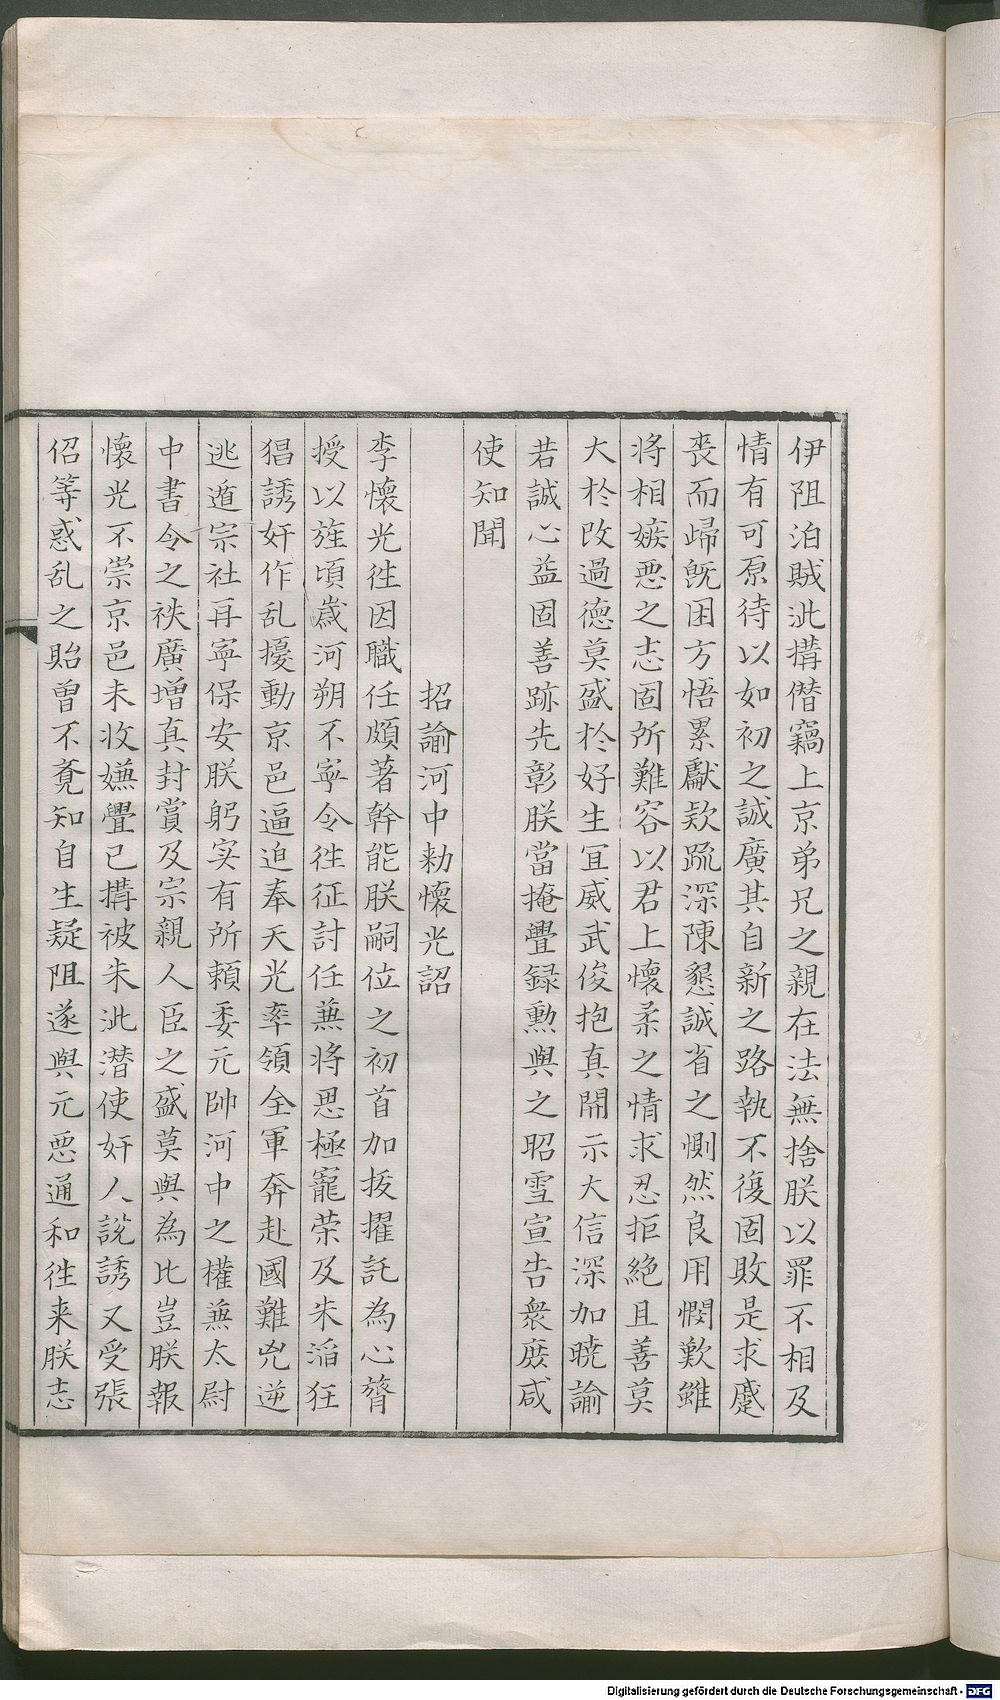 伊阻洎賊泚搆僭竊上京弟兄之親在法無捨朕以罪不相及
情有可原待以如初之誠廣其自新之路執不復固敗是求蹙
喪而歸旣困方悟累獻欵疏深陳懇誠省之惻然良用憫歎雖
將相嫉惡之志固所難容以君上懷柔之情求忍拒絶且善莫
大於改過德莫盛於好生冝威武俊抱真開示大信深加曉諭
若誠心益固善跡先彰朕當掩舋録勲與之昭雪宣告衆庻咸
使知聞
招諭河中勑懷光詔
李懷光徃因職任頗著幹能朕嗣位之初首加拔擢託為心膂
授以旌頃歲河朔不寧令徃征討任兼將思極寵荣及朱滔狂
猖誘奸作乱擾動京邑逼迫奉天光率領全軍奔赴國難兇逆
逃遁宗社再寧保安朕躬实有所頼委元帥河中之權兼太尉
中書令之袟廣增真封賞及宗親人臣之盛莫與為比豈朕報
懷光不崇京邑未收嫌舋已搆被朱泚潛使奸人說誘又受張
佋等惑乱之貽曾不覔知自生疑阻遂與元惡通和徃来朕志
Digitalisierung gefördert durch die Deutsche Forschungsgemeinschaft - DFG